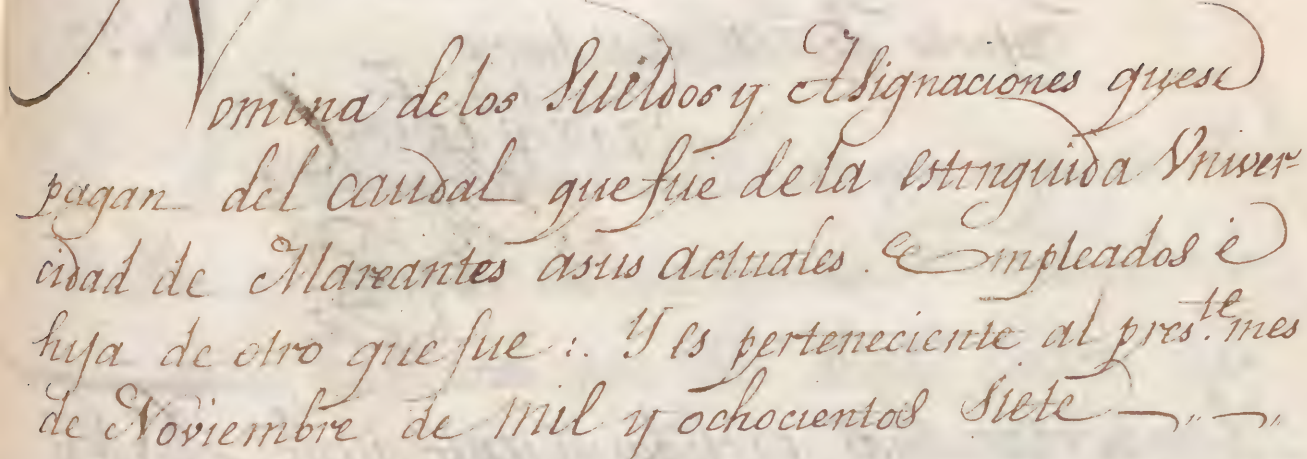 Nomina de los Sueldos y Asignaciones quese
pagan del caudal que fue de la estinguida Vniver-
cidad de Mareantes asus actuales Empleados é
hija de otro que fue: Y es perteneciente al pres.te mes
de Noviembre de mil y ochocientos siete